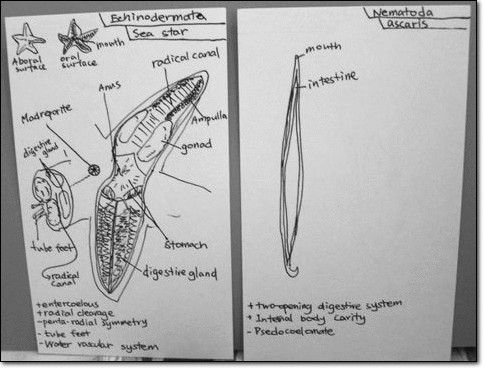 Echinodermata
Sea star
Aboral
surface
oral
surface
mouth
radical canal
Anus
Ampulla
Madreporite
gonad
digestive
gland
stomach
tube feet
radical
canal
digestive gland
+entercoelous
+radial cleavage
-penta-radial symmetry
- tube feet
- Water vascular system
Nematoda
ascaris
mouth
intestine
+ two-opening digestive system
+ Internal body cavity
- Psedocoelomate